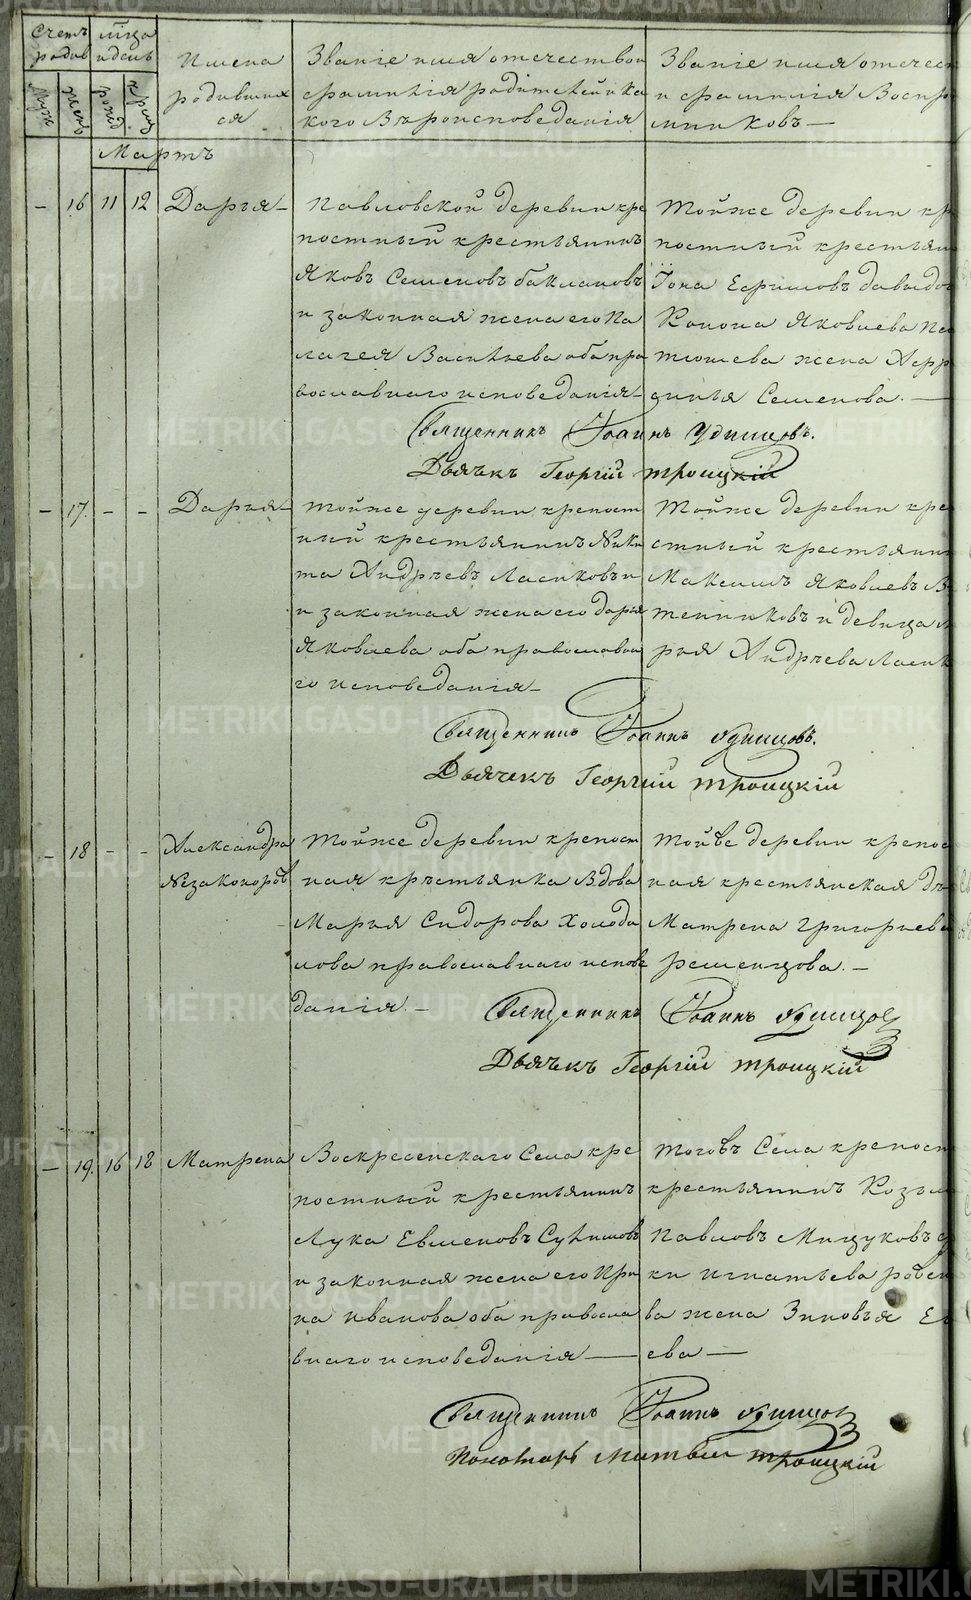 Счетъ родив
мца и день
Имена родившихся
Званіе имя отечество и фамилія родителей и какого Вѣроисповеданія
Званіе имя отечест и фамилія Воспр мниковъ —
Муж. Жен. рожд. крещ.
Мартъ
— 16 11 12 Дарья —
Павловской деревни кре
постный крестьянинъ
Яковъ Семеновъ баклановъ
и законная жена его Па
лагея Васильева оба пра
вославнаго исповеданія —
Тойже деревни кр
постный крестьян
Іона Ефимовъ давыдов
Конона Яковлева Па
тюшева жена Афр
синья Семенова. —
Священникъ Іоаннъ Удинцовъ.
Дьячекъ Георгій Троицкій
— 17. — — Дарья —
тойже деревни крепост
ный крестьянинъ Ники
та Андрѣевъ Ласиковъ и
и законная жена его дарья
Яковлева оба православна
го исповеданія —
Тойже деревни кре
стный крестьянин
Максимъ Яковлевъ В
тенниковъ и девица М
рья Андрѣева Ласик
Священникъ Іоаннъ Удинцовъ.
Дьячекъ Георгій Троицкій
— 18 — — Александра
Незаконоров
Тойже деревни крепост
ная крѣстьянка Вдова
Марья Сидорова Холода
лова православнаго испове
данія. —
тойже деревни крепос
ная крестьянская дѣ
Матрена григорьева
ременцова. —
Священникъ Іоаннъ Удинцов
Дьячекъ Георгій Троицкій
— 19. 16 18 Матрена
Воскресенскаго Села кре
постный крестьянинъ
Лука Евменовъ Сулимовъ
и законная жена его Ири
на иванова оба правосла
внаго исповеданія —
тогожъ Села крепост
крестьянинъ Козьм
Павловъ Мицуковъ
ки игнатьева
ва жена Зиновья Е
ева —
Священникъ Іоаннъ Удинцов
Пономарь Матвѣй Троицкій
METRIKI.GASO-URAL.RU